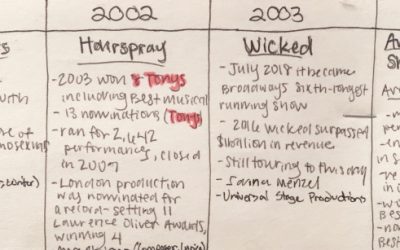 2002
Hairspray
- 2003 won 8 Tonys
including Best musical
- 13 nominations (Tony)
- ran for 2,642
performances, closed
in 2009
- London production
was nominated for
a record-setting 11
Laurence Olivier Awards,
winning 4
2003
Wicked
- July 2018 it became
Broadways sixth-longest
running show
- 2016 Wicked surpassed
$1 billion in revenue
- Still touring to this day
- Idina Menzel
- Universal Stage Productions